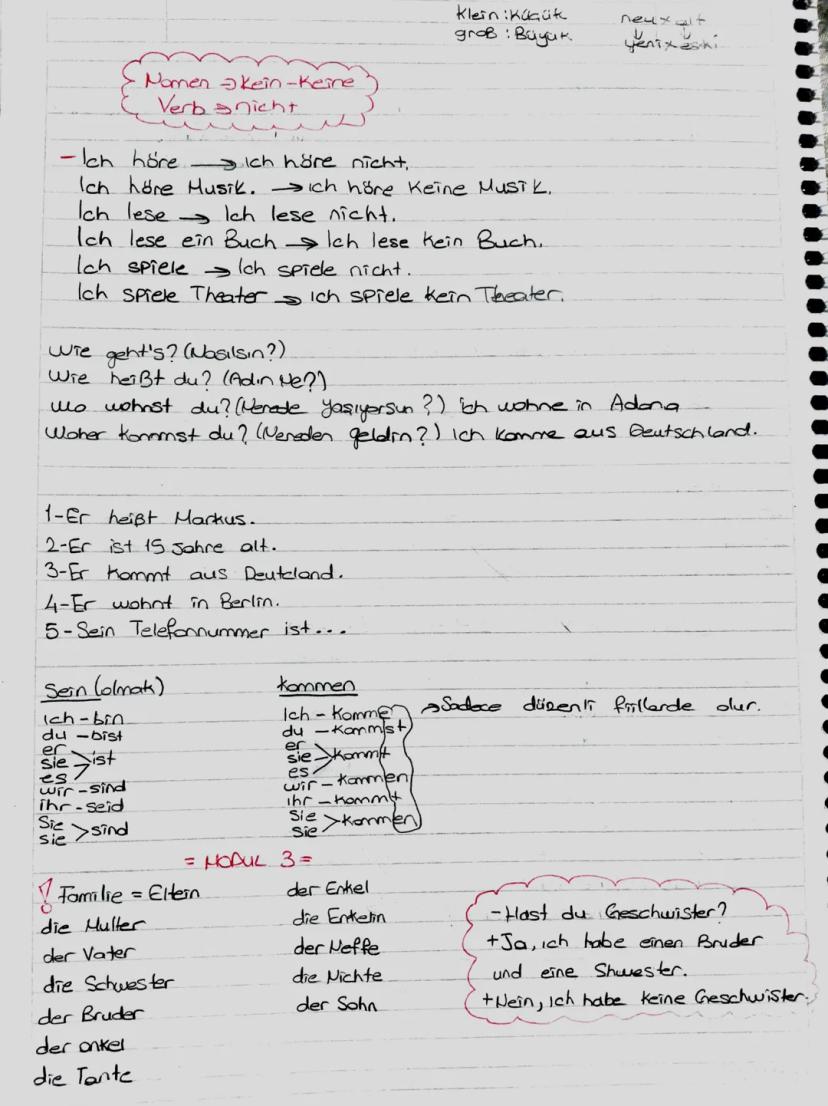 Klein : Küçük
groß : Büyük
neu x alt
yeni x eski
Nomen → Kein-Keine
Verb → nicht
- Ich höre → ich höre nicht.
Ich höre Musik. → ich höre Keine Musik.
Ich lese → Ich lese nicht.
Ich lese ein Buch → Ich lese kein Buch.
Ich spiele → Ich spiele nicht.
Ich spiele Theater → ich spiele kein Theater.
Wie geht's? (Nasılsın?)
Wie heißt du? (Adın Ne?)
wo wohnst du? (Nerede yaşıyorsun?) ich wohne in Adana
Woher kommst du? (Nereden geldin?) Ich komme aus Deutschland.
1-Er heißt Markus.
2-Er ist 15 Jahre alt.
3-Er kommt aus Deutcland.
4-Er wohnt in Berlin.
5-Sein Telefonnummer ist...
Sein (olmak)
ich-bin
du-bist
er
sie > ist
es
wir-sind
ihr-seid
Sie
sie > sind
kommen
Ich-Komme → Sadece düzenli fiillerde olur.
du-kommst
er
sie > kommt
es
wir-kommen
ihr-kommt
Sie
sie > kommen
= MODUL 3 =
! Familie = Eltern
die Mutter
der Vater
die Schwester
der Bruder
der onkel
die Tante
der Enkel
die Enkelin
der Neffe
die Nichte
der Sohn
- Hast du Geschwister?
+ Ja, ich habe einen Bruder
und eine Shwester.
+ Nein, ich habe keine Geschwister.